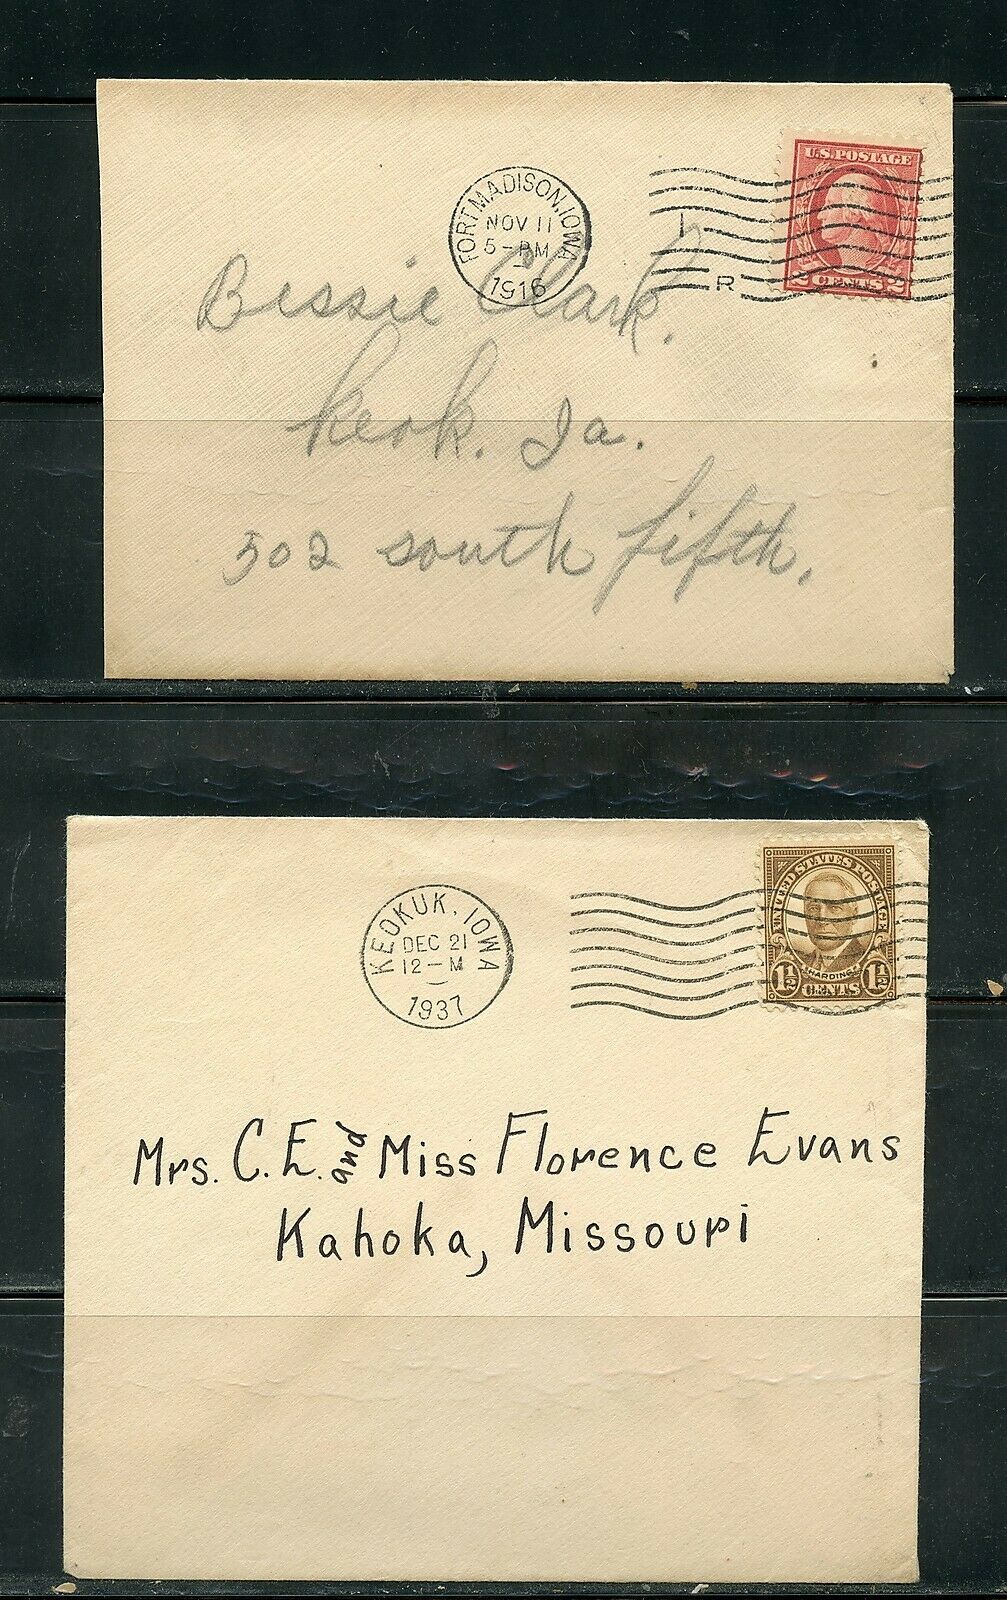 FORT MADISON, IOWA
NOV 11
5-PM
1916
I
R
U.S. POSTAGE
2 CENTS 2
Bessie Clark.
Keok. Ia.
502 south fifth.
KEOKUK, IOWA
DEC 21
12-M
1937
UNITED STATES POSTAGE
HARDING
1½ CENTS 1½
Mrs. C. E. and Miss Florence Evans
Kahoka, Missouri